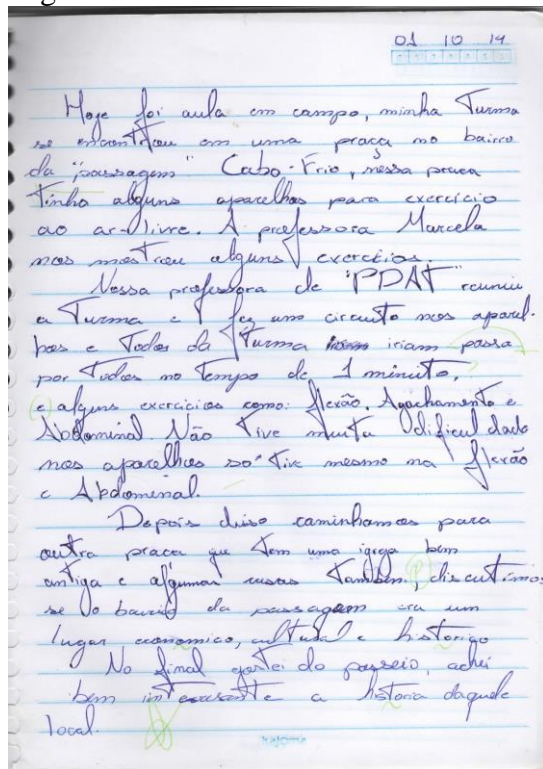 01 10 14
Hoje foi aula em campo, minha Turma
se encontrou em uma praça no bairro
da "passagem" Cabo-Frio, nessa praca
Tinha alguns aparelhos para exercício
ao ar-livre. A professora Marcela
nos mostrou alguns exercícios.
Nossa professora de "PDAT" reuniu
a Turma e fez um circuito nos aparel-
hos e Todos da Turma iriam passa
por Todos no Tempo de 1 minuto,
e alguns exercicios como: flexão, Agachamento e
Abdominal. Não Tive muita dificuldade
nos aparelhos so Tive mesmo na flexão
e Abdomenal.
Depois disso caminhamos para
outra praca que Tem uma igreja bem
antiga e algumas casas Também, discutimos
se o bairro da passagem era um
lugar economico, cultural e historico
No final gostei do passeio, achei
bem interesante a historia daquele
local.